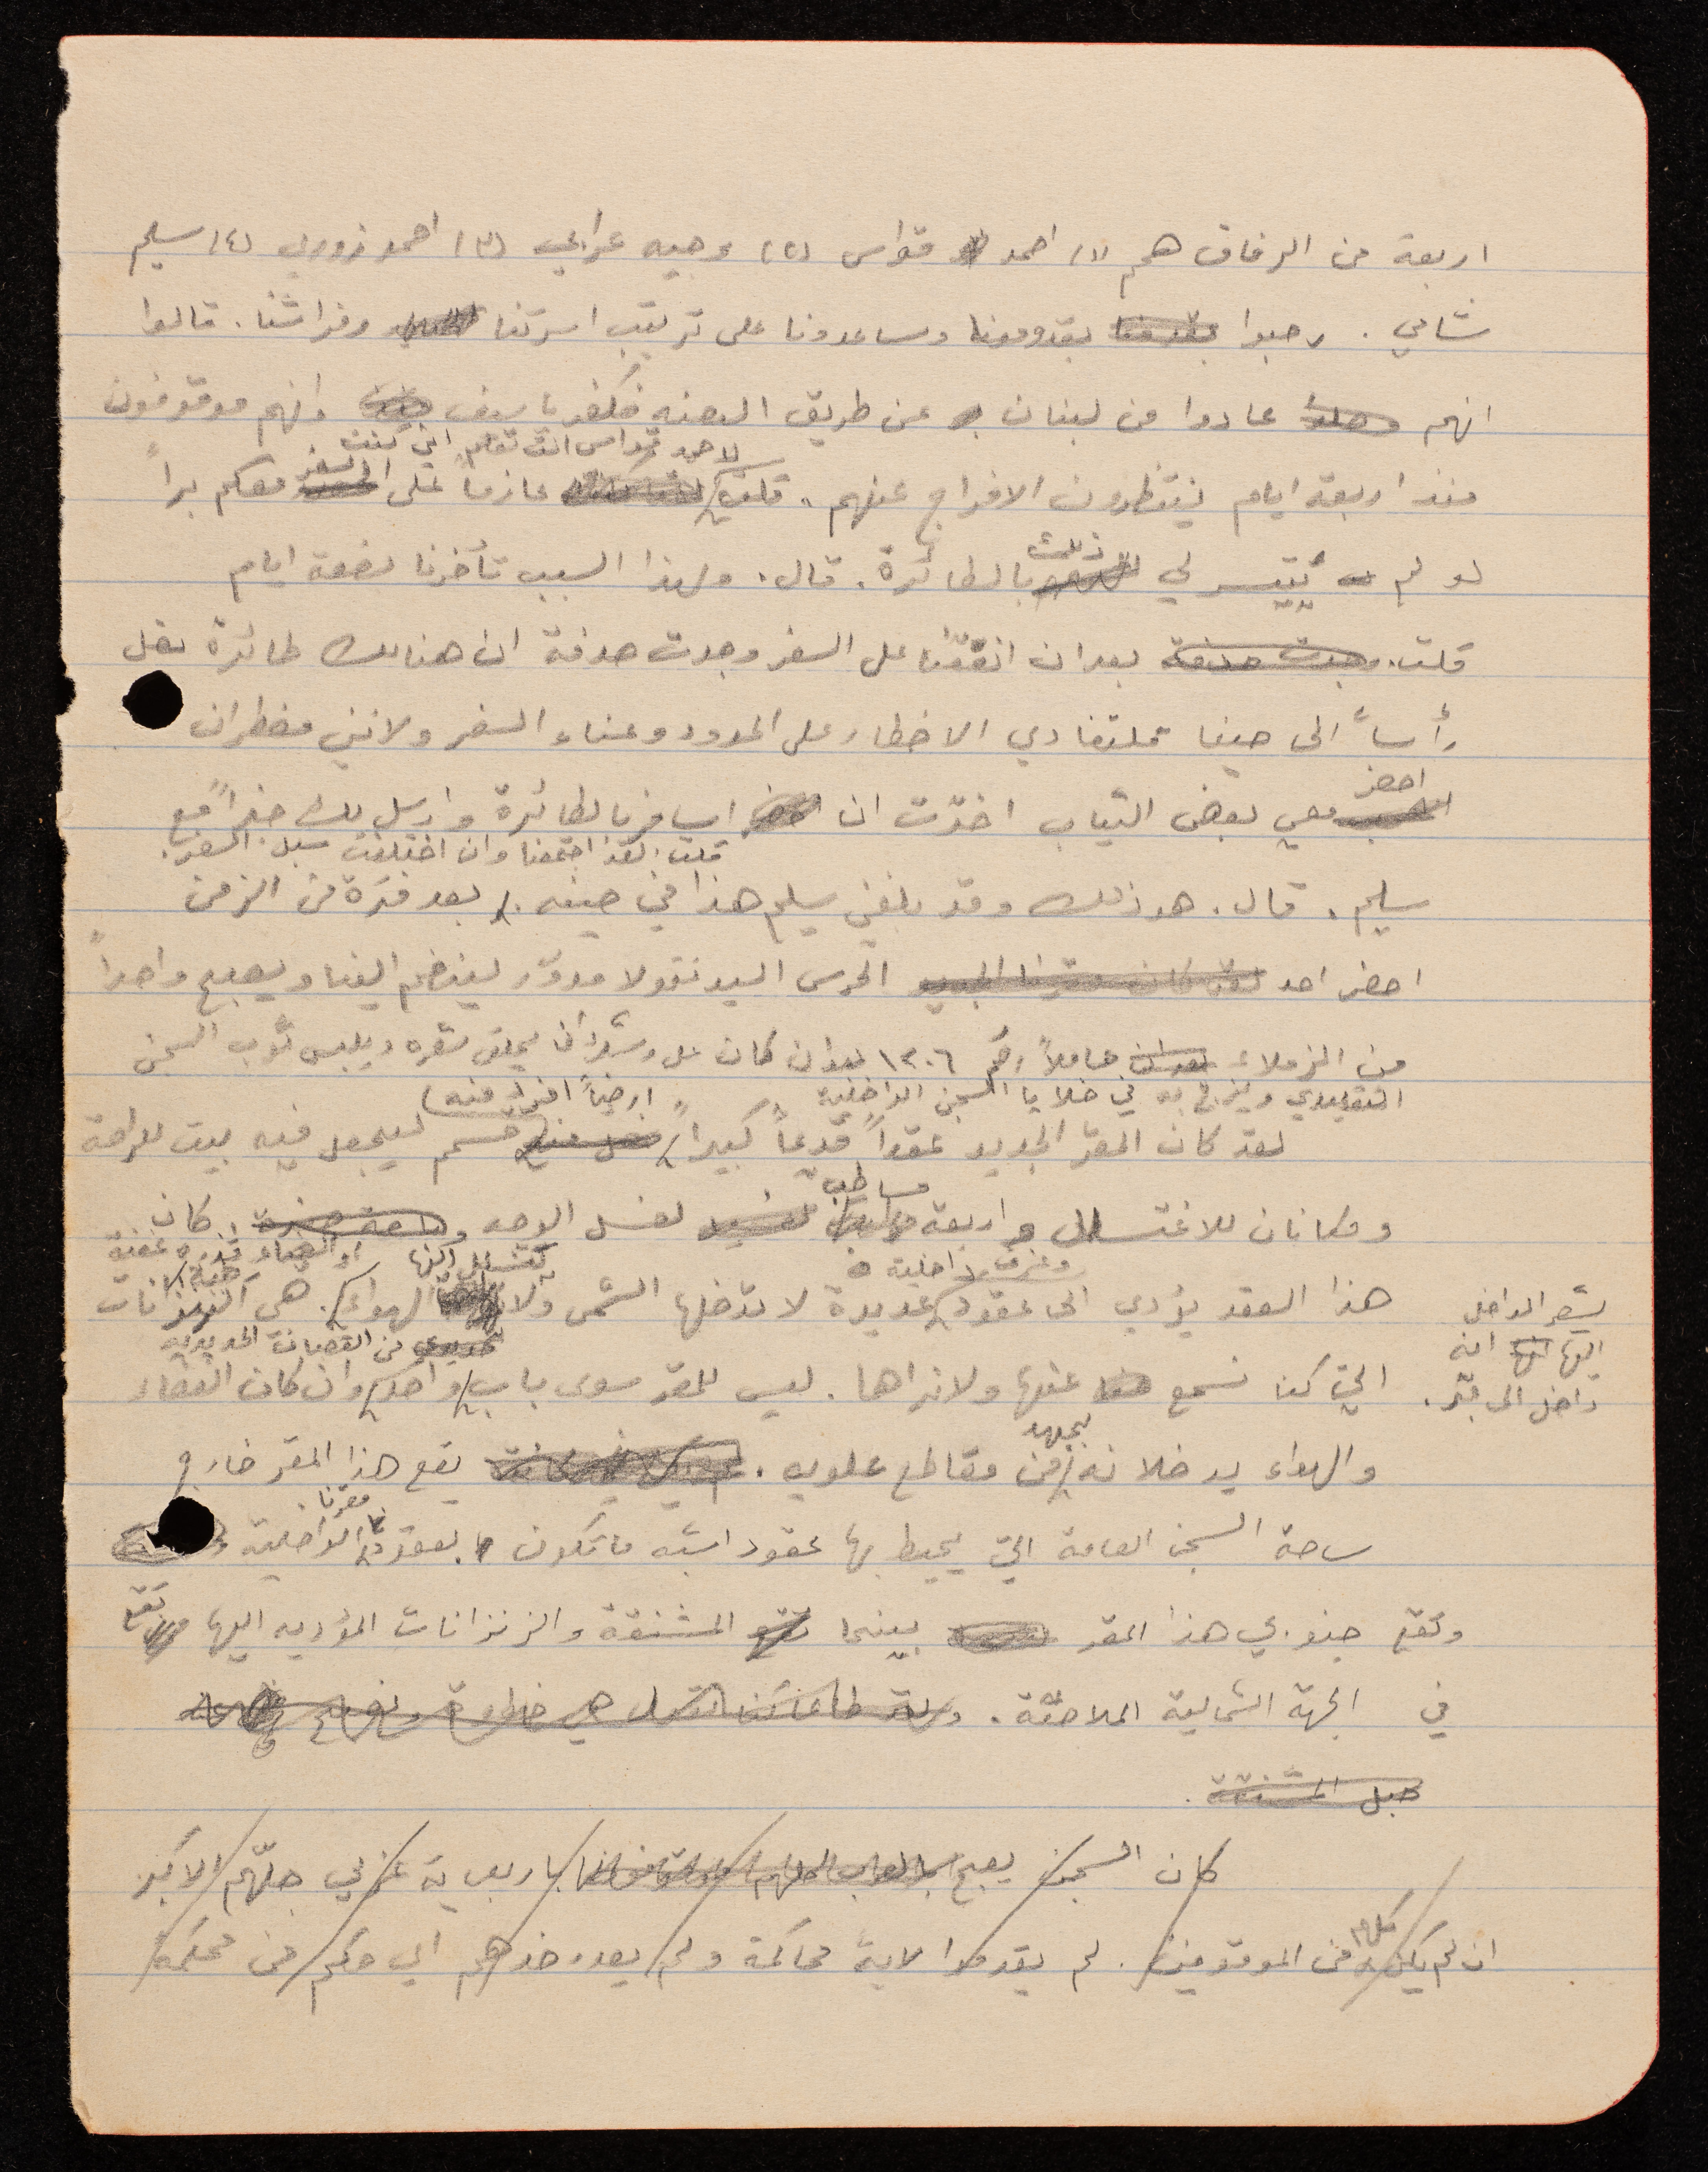 اربعة من الرفاق هم (١) احمد قواس (٢) وجيه عرابي (٣) احمد زوري (٤) سليم
شامي . رحبوا بقدومنا وساعدونا على ترتيب اسرتنا وفراشنا . قالوا
انهم عادوا من لبنان عن طريق البعنه فكفر ياسيف وانهم موقوفون
لاحمد قواس انت تعلم اني كنت
منذ اربعة ايام ينتظرون الافراج عنهم . قلت عازماً على السفر معكم براً
لو لم يتيسر لي ذلك بالطائرة . قال . ولهذا السبب تأخرنا بضعة ايام
قلت . بعد ان اتفقنا على السفر وجدت صدفة ان هنالك طائرة تقل
رأساً الى حيفا فلتفادي الاخطار على الحدود وعناء السفر ولانني مضطر ان
احضر
معي بعض الثياب اخترت ان اسافر بالطائرة وارسل لك خبراً مع
قلت . لقد اجتمعنا وان اختلفت سبل السفر .
سليم . قال . هو ذلك وقد بلغني سليم هذا في حينه . بعد فترة من الزمن
احضر احد الحرس السيد نقولا مدوّر لينضم الينا ويصبح واحداً
من الزملاء حاملاً رقم ١٣٠٦ بعد ان كان على وشك ان يحلق شعره ويلبس ثوب السجن
التقليدي ويزج به في خلايا السجن الداخلية
لقد كان المقر الجديد عقداً قديماً كبيراً ارضياً افرد منه قسم ليجعل فيه بيت للراحة
ومكانان للاغتسال واربعة مساطب لغسل الوجه . كان
وغرف داخلية
هذا العقد يؤدي الى عقود عديدة لا تدخلها الشمس ولا يتسلل اليها الهواء . هي الزنزانات
يشعر الداخل
اليها انه
داخل الى قبر .
التي كنا نسمع عنها ولا نراها . ليس للمقر سوى باب واحد من القضبان الحديدية وان كان الفضاء
والهواء يدخلانه بجهد من مقاطع علويه . يقع هذا المقر خارج
ساحة السجن العامة التي يحيط بها عقود اشبه ما تكون بعقود مقرنا الداخلية
وتقع جنوبي هذا المقر بينما المشنقة والزنزانات المؤديه اليها تقع
في الجهة الشمالية الملاصقة .
حبل المشنقة .
كان السجن يعج باربعماية عربي جلّهم الاكبر
ان لم يكن كلهم من الموقوفين . لم يقدموا لاية محاكمة ولم يصدر ضدهم اي حكم من محكمة